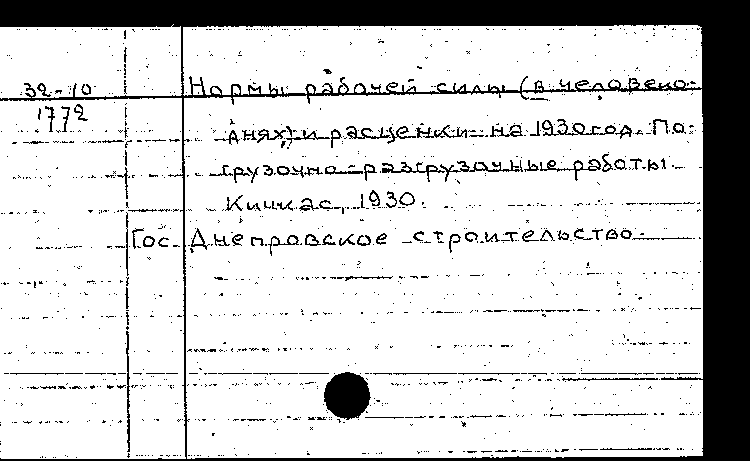 32-10 Нормы рабочей силы (в человеко-
1772
днях) и расценки на 1930 год. По-
грузочно-разгрузочные работы.
Кичкас, 1930.
Гос. Днепровское строительство.